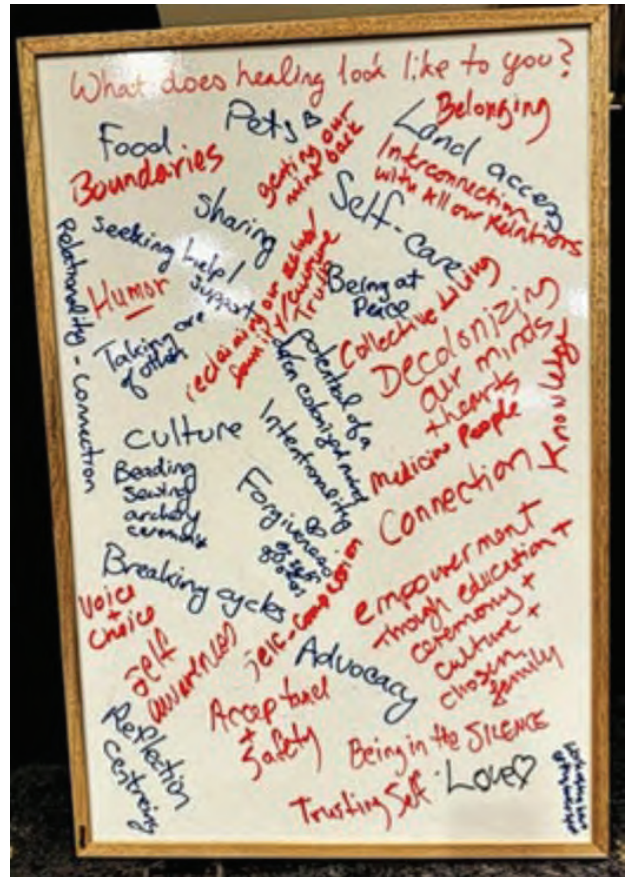 What does healing look like to you?
Food
Pets
Belonging
Boundaries
getting our
mind back
Land access
Interconnection
with All our Relations
Sharing
Self-care
seeking help/
support
Relationality - Connection
Humor
Taking care
of others
reclaiming our
family/
Truth
Being at
Peace
Collective Living
Decolonizing
our minds
+ hearts
Knowledge
potential of a
colonized mind
Intentionality
Medicine People
culture
Beading
Sewing
archery
ceremony
Forgiveness
of self
Connection
Breaking cycles
Voice
+
choice
self
awareness
self-compassion
empowerment
through education +
ceremony +
culture +
chosen
family
Advocacy
Acceptance
+
Safety
Reflection
Centering
Being in the SILENCE
Trusting Self
Love♡